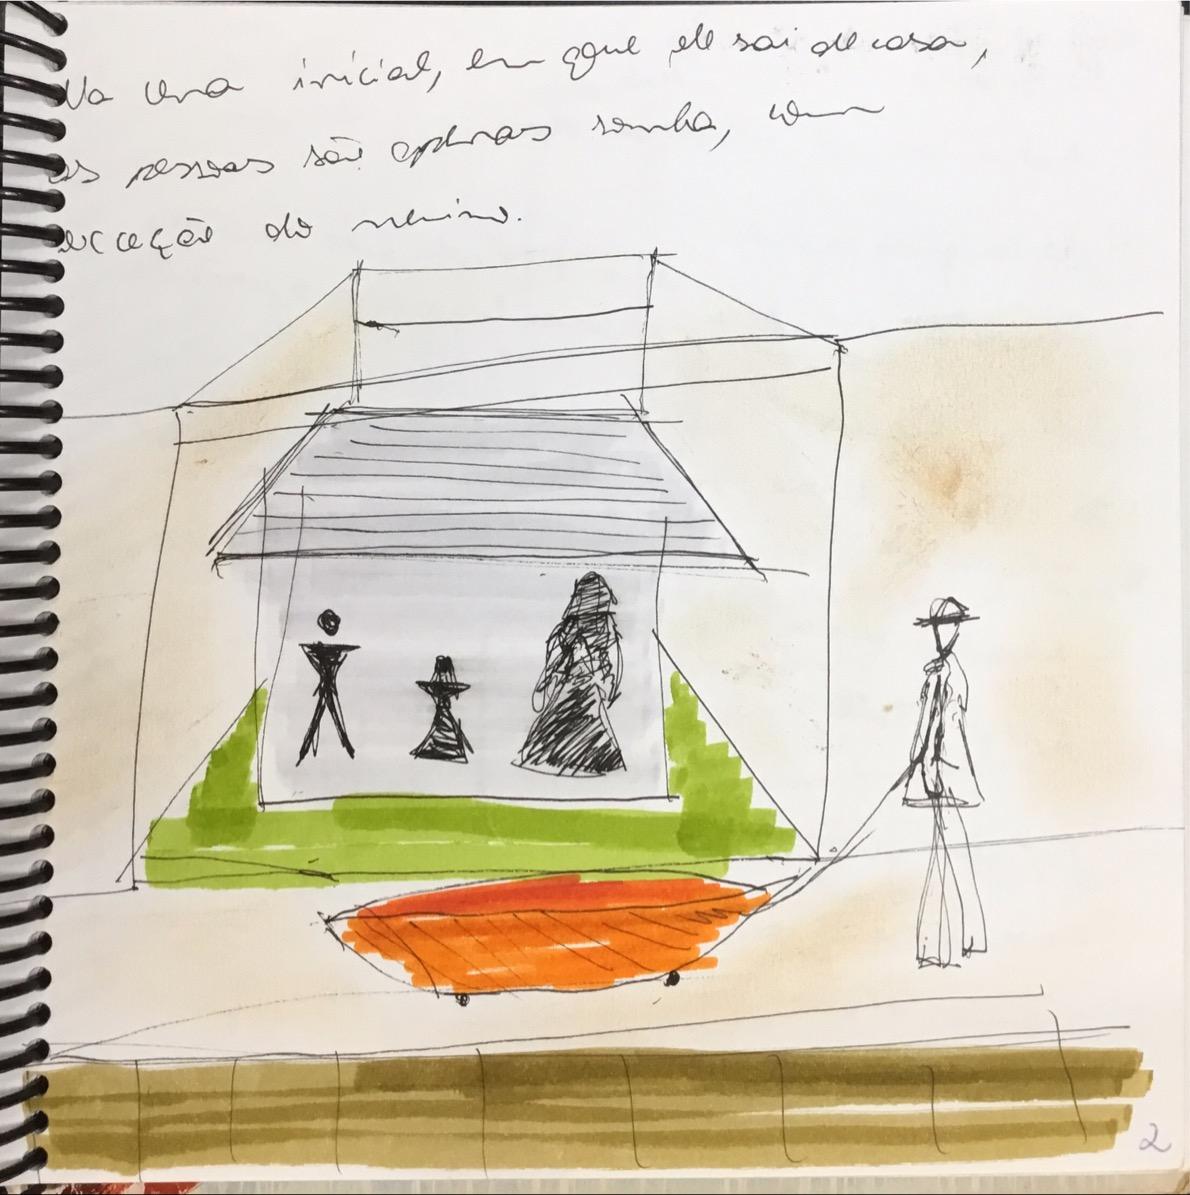 Na cena inicial, em que ele sai de casa,
as pessoas são apenas sombra, com
exceção do menino.
2